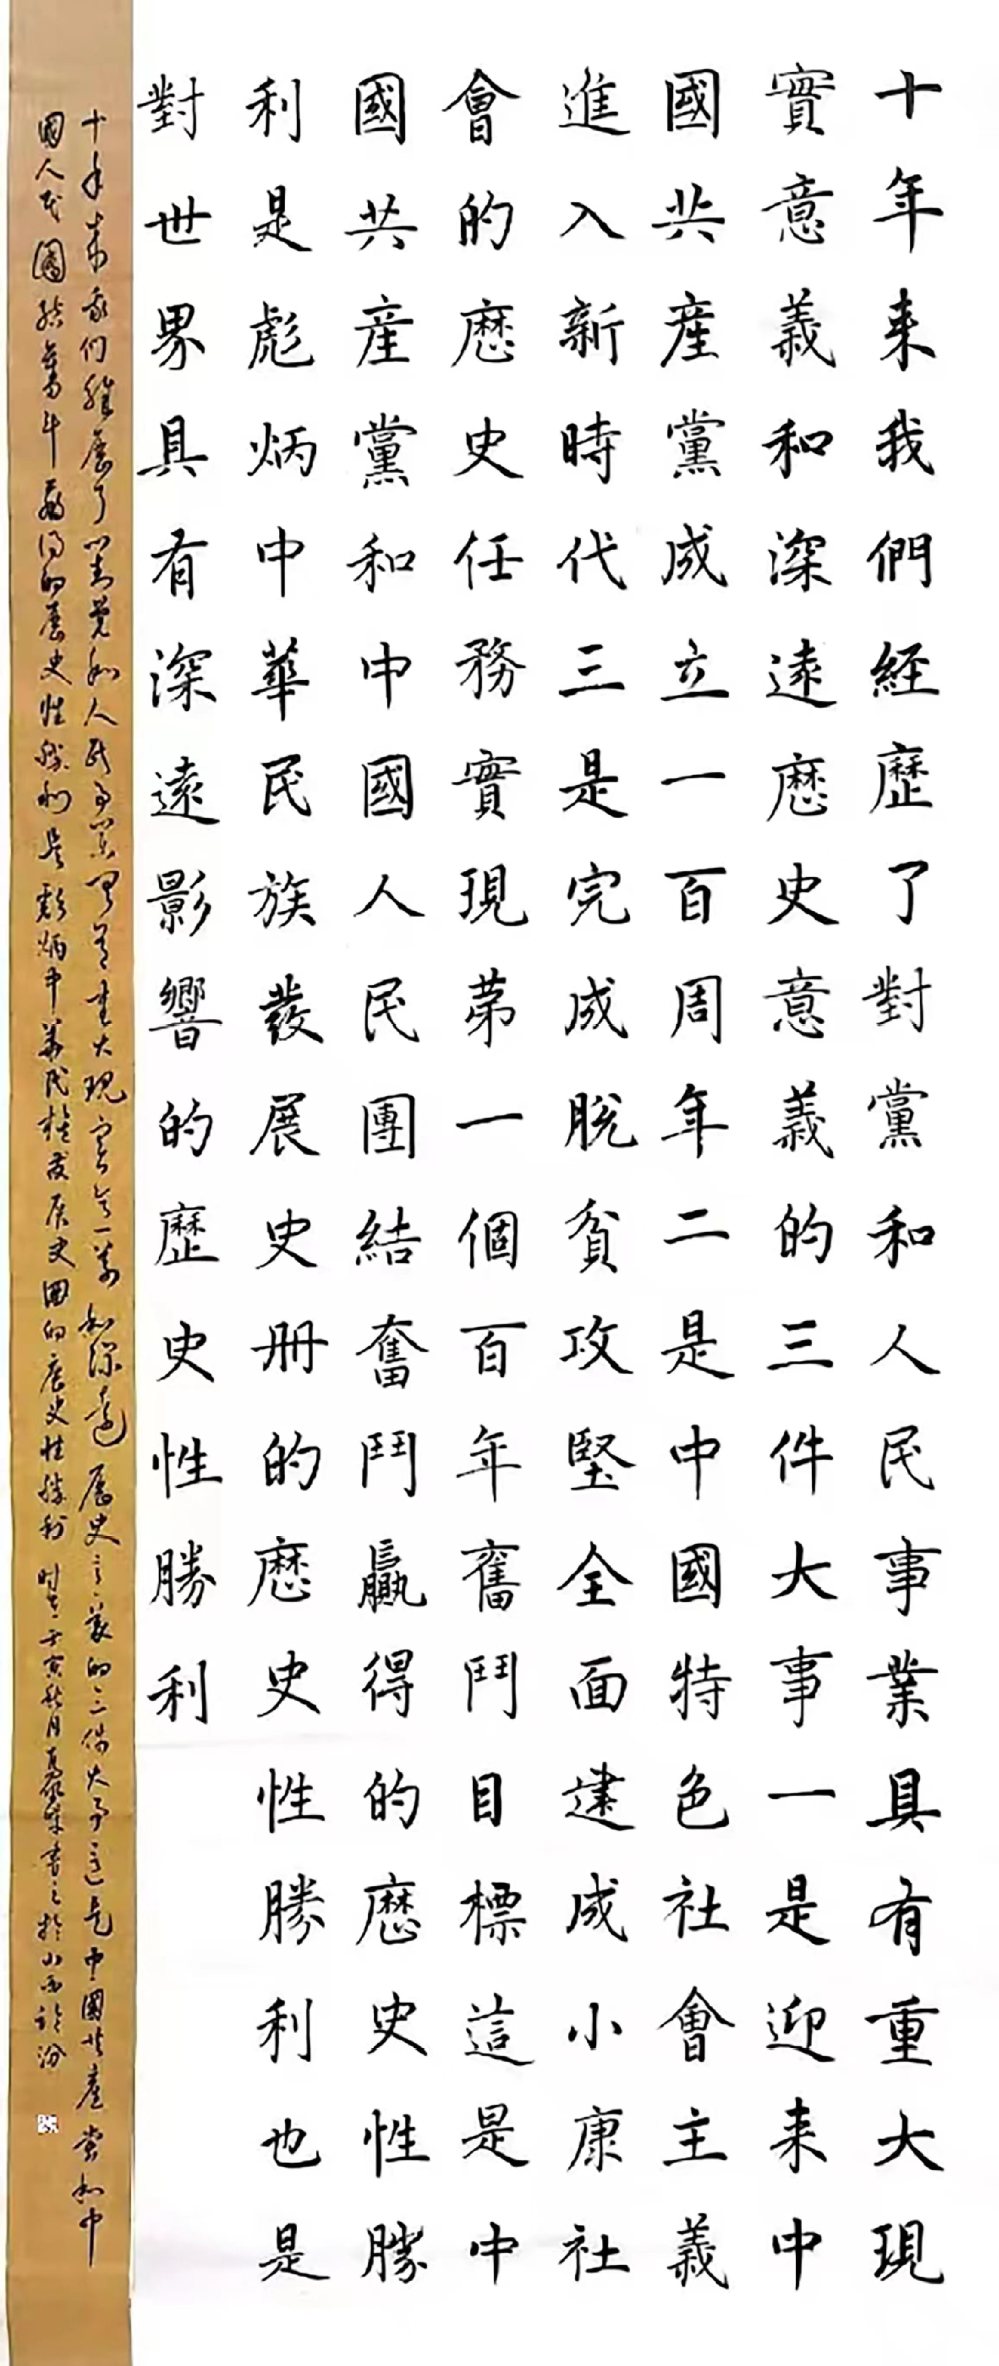 十年来我們経歷了對黨和人民事業具有重大現
實意義和深遠厯史意義的三件大事一是迎来中
國共産黨成立一百周年二是中國特色社會主義
進入新時代三是完成脫貧攻堅全面建成小康社
會的厯史任務實現苐一個百年奮鬥目標這是中
國共産黨和中國人民團結奮鬥贏得的厯史性勝
利是彪炳中華民族發展史册的厯史性勝利也是
對世界具有深遠影響的歷史性勝利
十年来我们經歷了對黨和人民事業具有重大現實意義和深遠歷史意義的三件大事這是中國共產黨和中
國人民團結奮斗贏得的歷史性勝利是彪炳中華民族發展史冊的歷史性勝利 时在壬寅秋月書之於山西临汾